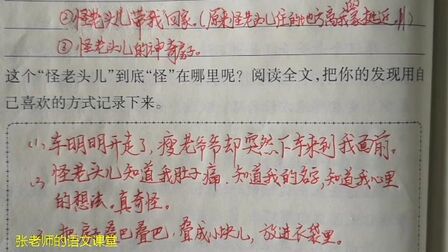 ②怪老头儿带我回家。(原来怪老头儿住的地方离我家挺近。)
③怪老头儿的神奇房子。
这个“怪老头儿”到底“怪”在哪里呢?阅读全文,把你的发现用自
己喜欢的方式记录下来。
(1)车明明开走了,瘦老爷爷却突然下车来到我面前。
(2)怪老头儿知道我肚子痛,知道我的名字,知道我心里
的想法,真奇怪。
3 把房子叠巴叠巴,叠成小块儿,放进衣袋里。
张老师的语文课堂